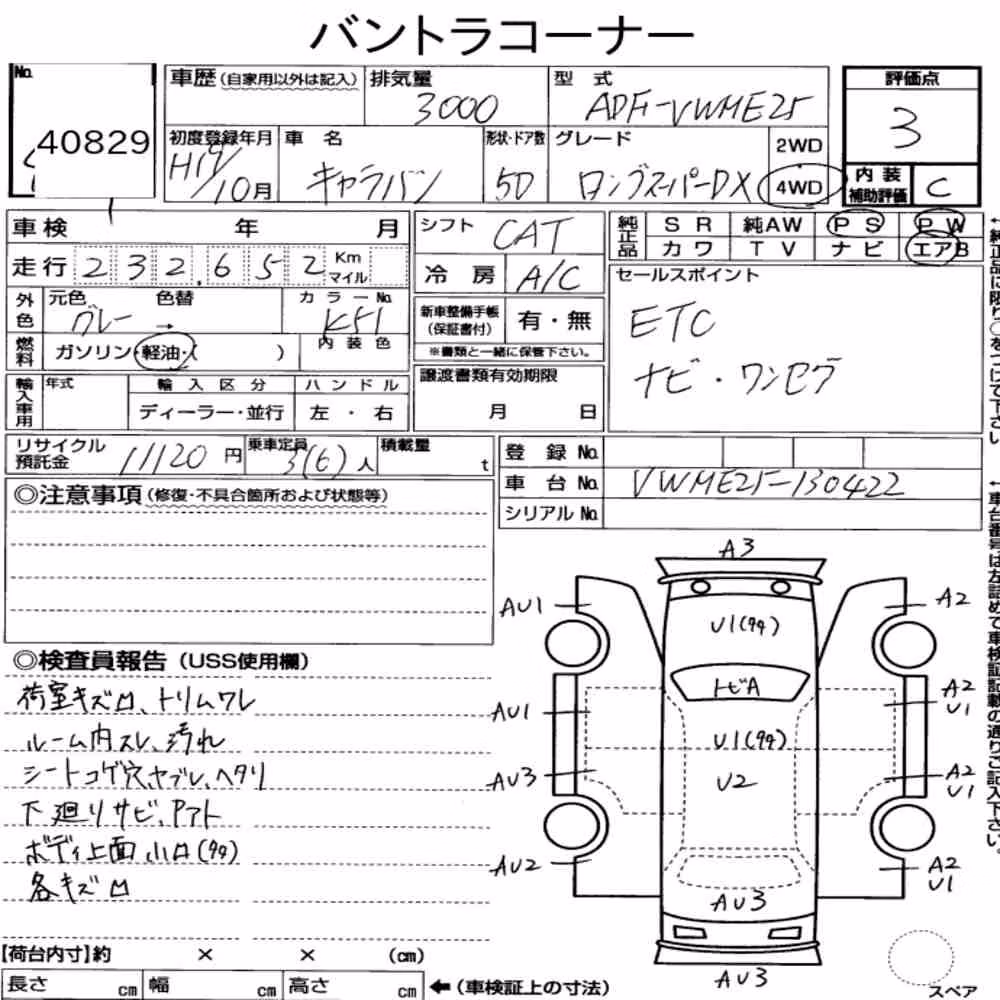 バントラコーナー
No.
40829
車歴 (自家用以外は記入)
排気量
3000
型 式
ADF-VWME25
評価点
3
初度登録年月
H19/10月
車 名
キャラバン
形状・ドア数
5D
グレード
ロングスーパーDX
2WD
4WD
内 装
補助評価
C
車検 年 月
シフト
CAT
純正品
S R 純AW P S P W
カワ T V ナビ エアB
走行 232,652 Km
マイル
冷 房
A/C
セールスポイント
ETC
ナビ・ワンセグ
外色
元色
グレー →
色替
カラーNo.
K51
新車整備手帳
(保証書付)
有・無
※書類と一緒に保管下さい。
燃料
ガソリン・軽油・( )
内 装 色
譲渡書類有効期限
月 日
輸入車用
年式
輸 入 区 分
ハ ン ド ル
ディーラー・並行
左 ・ 右
リサイクル
預託金
11120 円
乗車定員
3(6)人
積載量
t
登 録 No.
車 台 No.
VWME25-130422
シリアル No.
◎注意事項 (修復・不具合箇所および状態等)
←純正品に限り○をつけて下さい
←車台番号は左詰めで車検証記載の通りご記入下さい。
◎検査員報告 (USS使用欄)
荷室キズ凹、トリムワレ
ルーム内スレ、汚れ
シートコゲ穴、ヤブレ、ヘタリ
下廻りサビ、Pアト
ボディ上面小凹(タタ)
各キズ凹
A3
AU1
A2
U1(タタ)
トビA
AU1
A2
U1
U1(タタ)
U2
AU3
A2
U1
AU2
A2
U1
AU3
AU3
スペア
【荷台内寸】約 × × (cm)
長さ cm 幅 cm 高さ cm
←(車検証上の寸法)